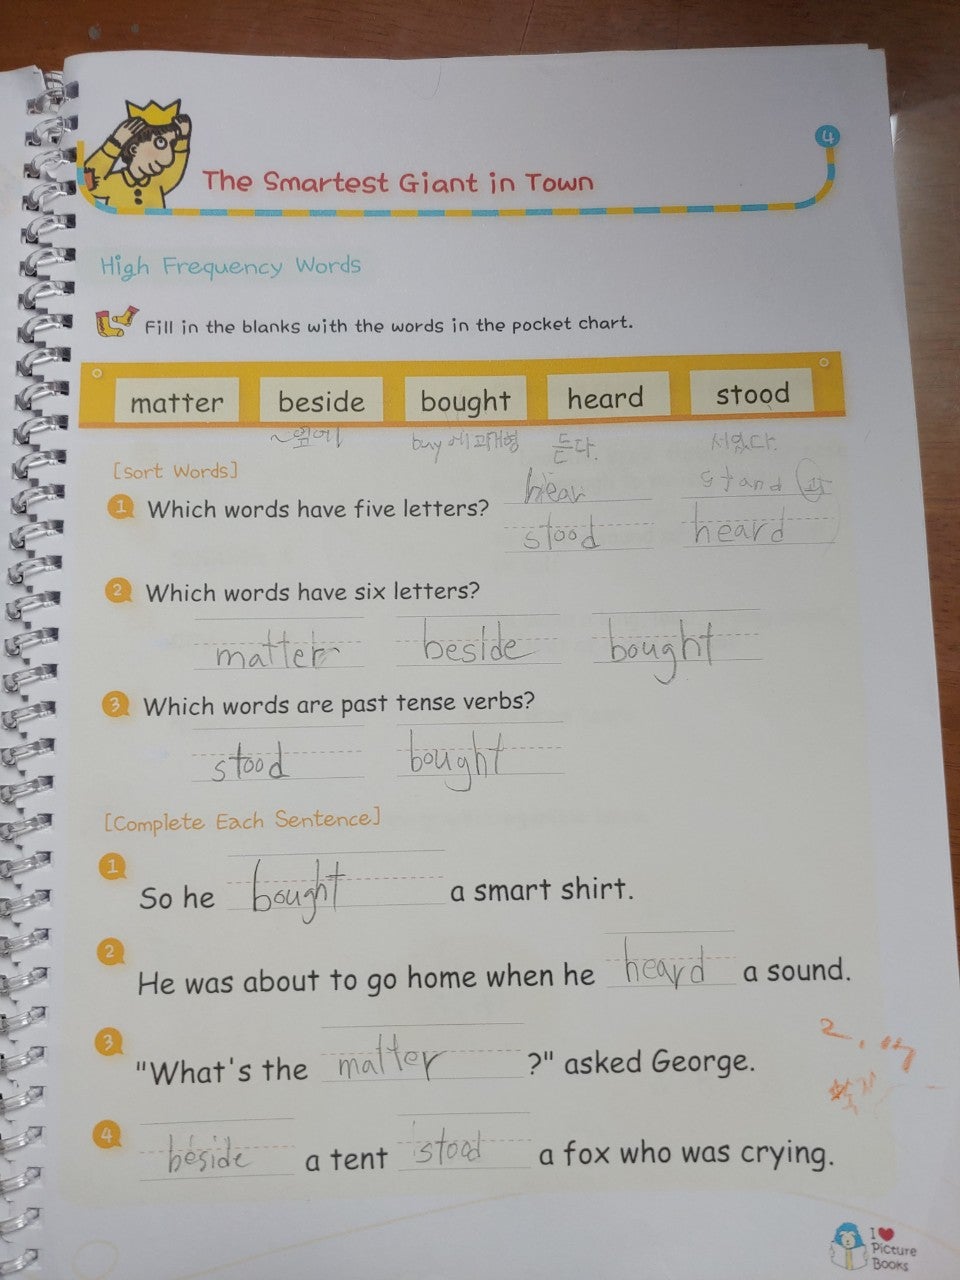 4
The Smartest Giant in Town
High Frequency Words
Fill in the blanks with the words in the pocket chart.
matter beside bought heard stood
~옆에 buy에 과거형 듣다. 서있다.
[Sort Words]
hear stand
1 Which words have five letters? stood heard
2 Which words have six letters?
matter beside bought
3 Which words are past tense verbs?
stood bought
[Complete Each Sentence]
1 So he bought a smart shirt.
2 He was about to go home when he heard a sound.
3 "What's the matter ?" asked George.
4 beside a tent stood a fox who was crying.
I ♥
Picture
Books